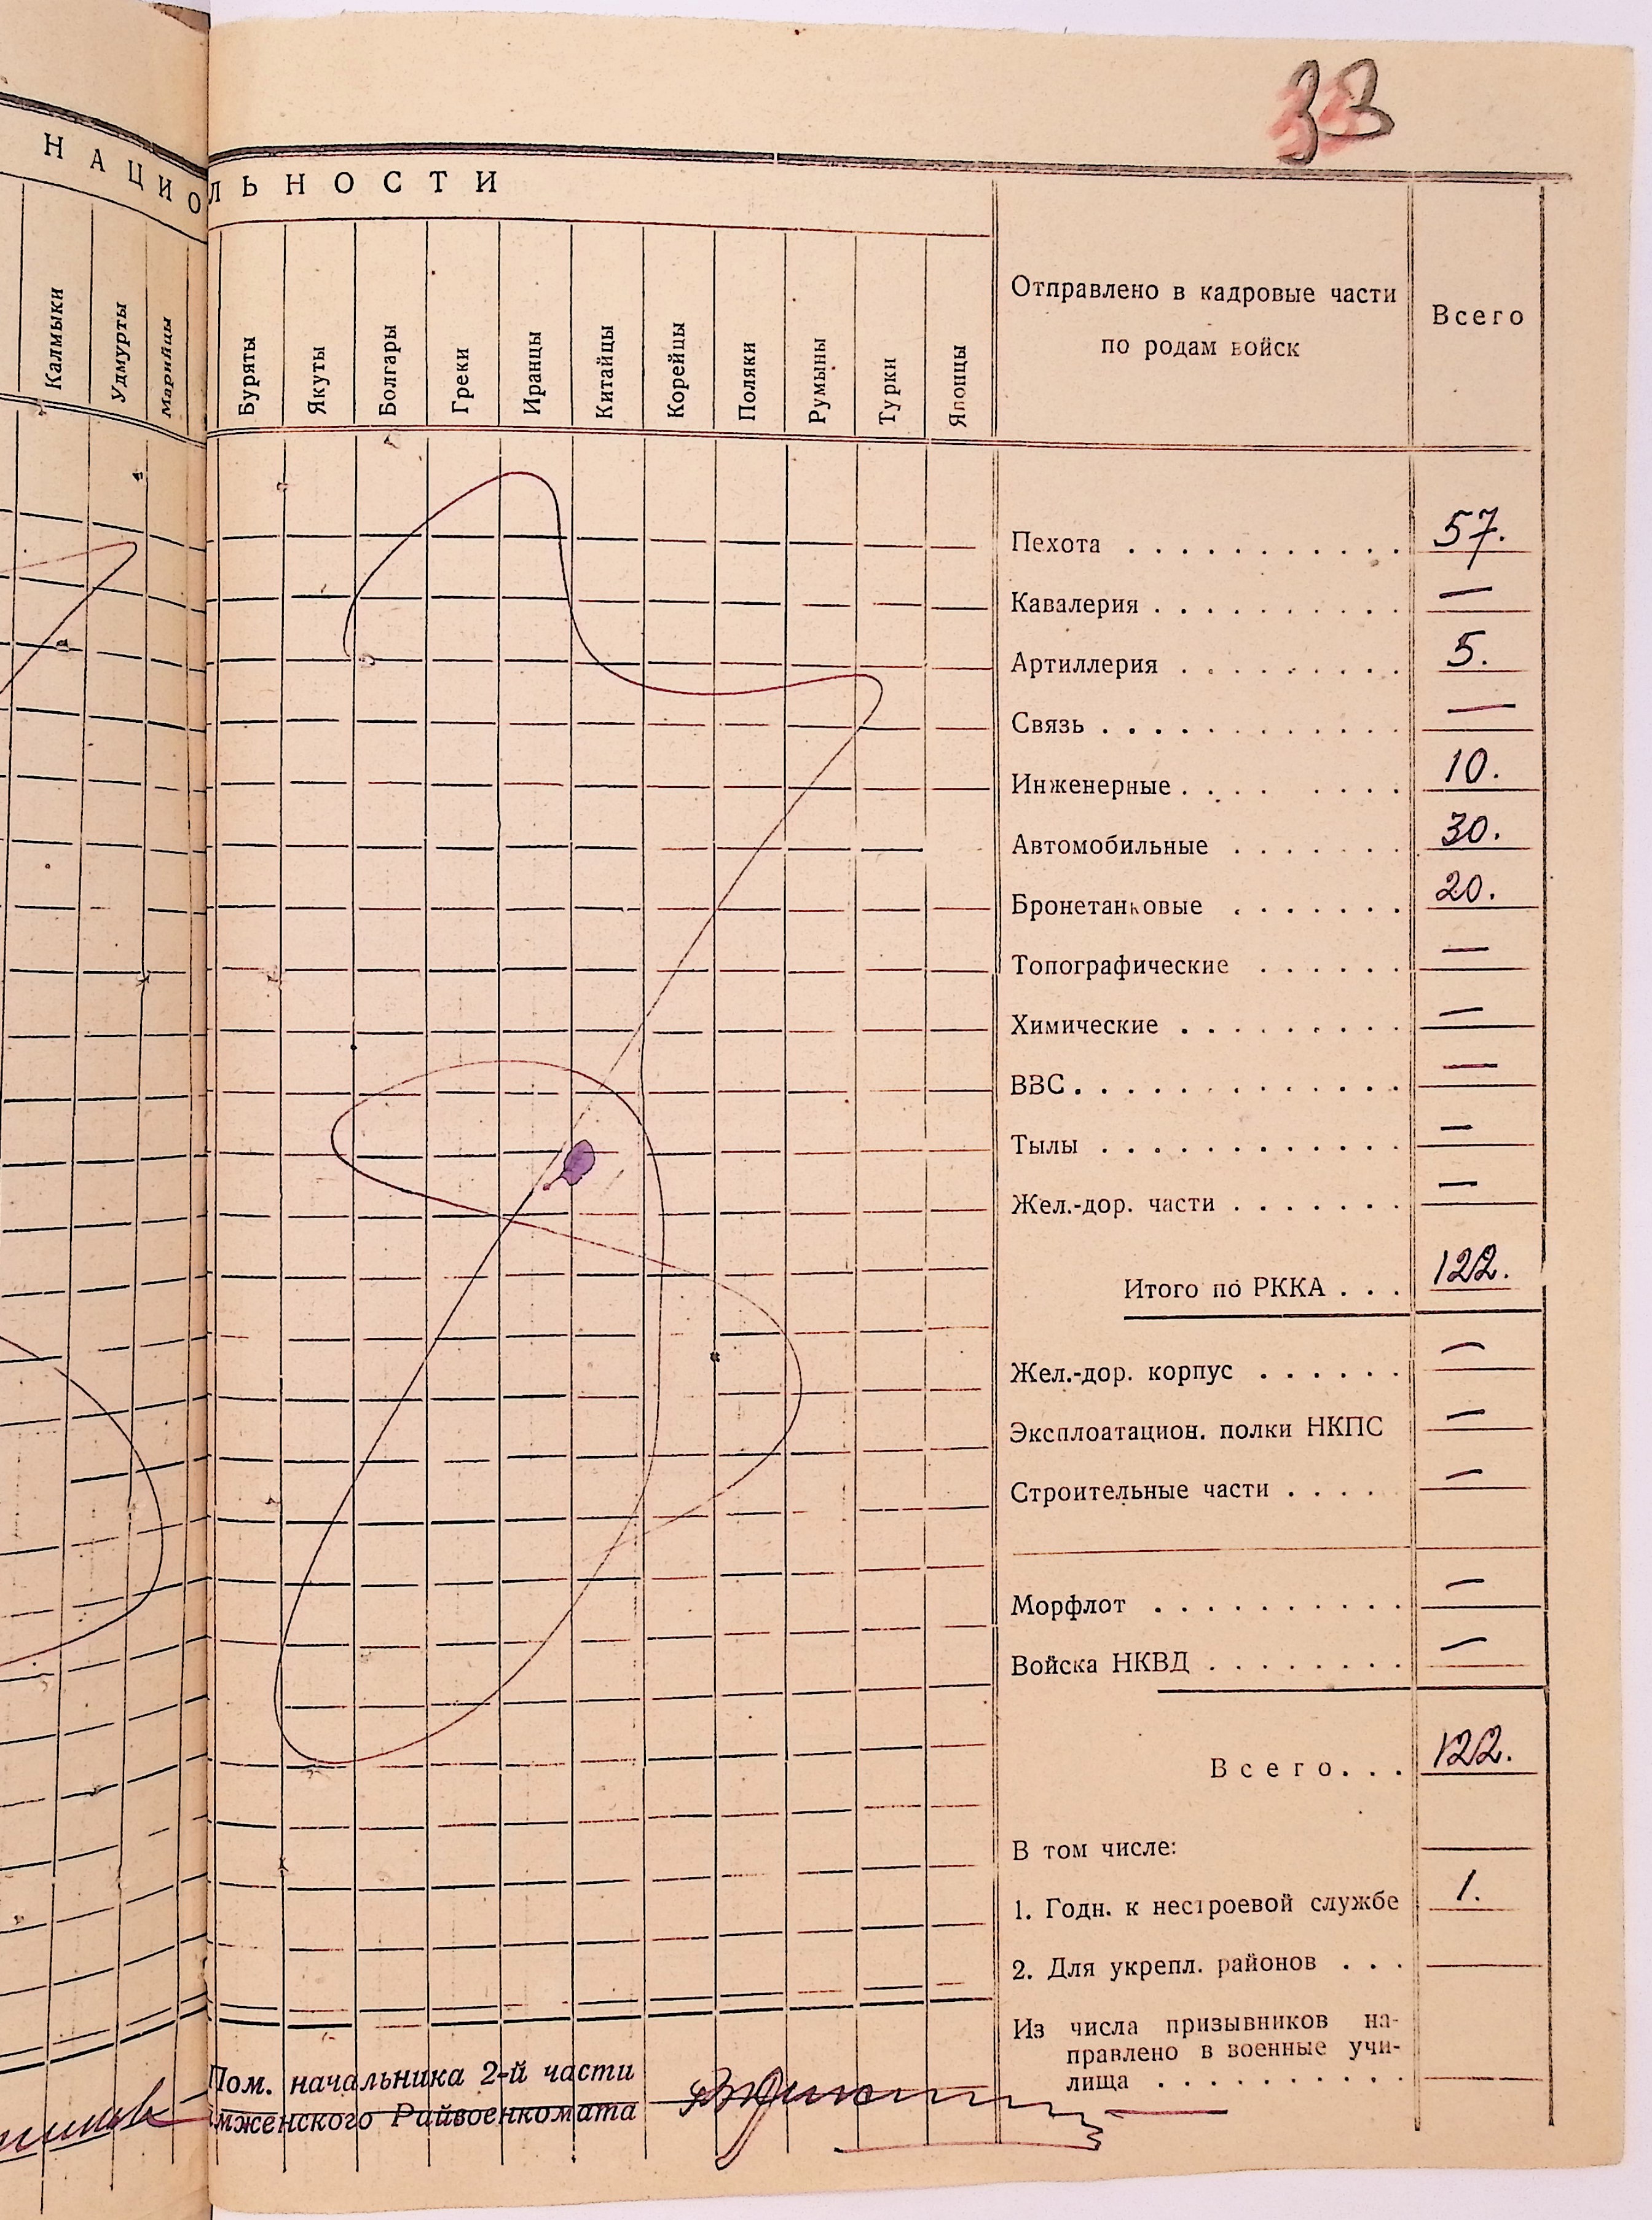 33
НАЦИО
ЛЬНОСТИ
Калмыки
Удмурты
Марийцы
Буряты
Якуты
Болгары
Греки
Иранцы
Китайцы
Корейцы
Поляки
Румыны
Турки
Японцы
Отправлено в кадровые части
по родам войск
Всего
Пехота . . . . . . . . . . . 57.
Кавалерия . . . . . . . . . —
Артиллерия . . . . . . . . 5.
Связь . . . . . . . . . . . —
Инженерные . . . . . . . . 10.
Автомобильные . . . . . . 30.
Бронетанковые . . . . . . . 20.
Топографические . . . . . . —
Химические . . . . . . . . —
ВВС . . . . . . . . . . . . —
Тылы . . . . . . . . . . . —
Жел.-дор. части . . . . . . . —
Итого по РККА . . . 122.
Жел.-дор. корпус . . . . . . —
Эксплоатацион. полки НКПС —
Строительные части . . . . —
Морфлот . . . . . . . . . . —
Войска НКВД . . . . . . . . —
Всего . . . 122.
В том числе:
1. Годн. к нестроевой службе 1.
2. Для укрепл. районов . . .
Из числа призывников на-
правлено в военные учи-
лища . . . . . . . . . .
Пом. начальника 2-й части
мженского Райвоенкомата